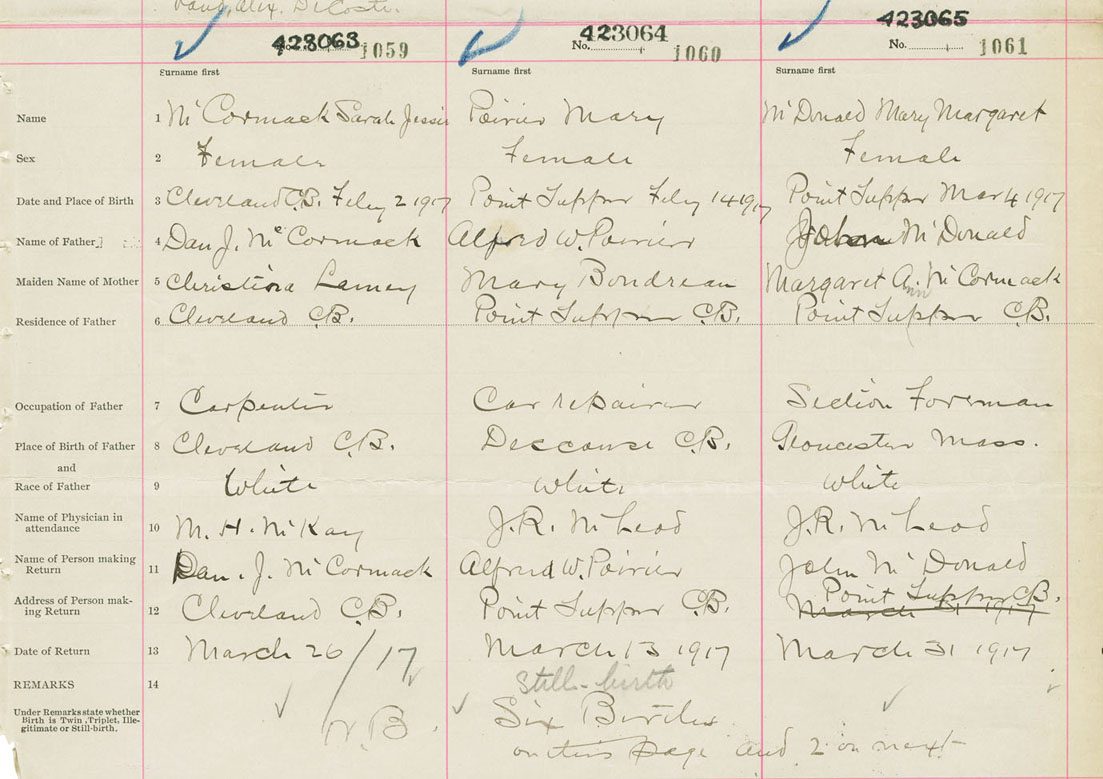 Paul, Alex. DeCoste.
423063 1059 No. 423064 1060 423065 No. 1061
Surname first Surname first Surname first
Name 1 McCormack Sarah Jessie Poirier Mary McDonald Mary Margaret
Sex 2 Female Female Female
Date and Place of Birth 3 Cleveland C.B. Feby 2 1917 Point Tupper Feby 14 1917 Point Tupper Mar 4 1917
Name of Father 4 Dan J. McCormack Alfred W. Poirier John McDonald
Maiden Name of Mother 5 Christina Lamey Mary Boudreau Margaret Ann McCormack
Residence of Father 6 Cleveland C.B. Point Tupper C.B. Point Tupper C.B.
Occupation of Father 7 Carpenter Car repairer Section Foreman
Place of Birth of Father 8 Cleveland C.B. Descouse C.B. Gloucester Mass.
and
Race of Father 9 White White White
Name of Physician in attendance 10 M. H. McKay J.R. McLeod J.R. McLeod
Name of Person making Return 11 Dan. J. McCormack Alfred W. Poirier John McDonald
Address of Person making Return 12 Cleveland C.B. Point Tupper C.B. Point Tupper C.B.
March 31 1917
Date of Return 13 March 26/17 March 13 1917 March 31 1917
REMARKS 14 Still-birth
Under Remarks state whether
Birth is Twin, Triplet, Ille-
gitimate or Still-birth.
N.B. Six Births
on this page and 2 on next